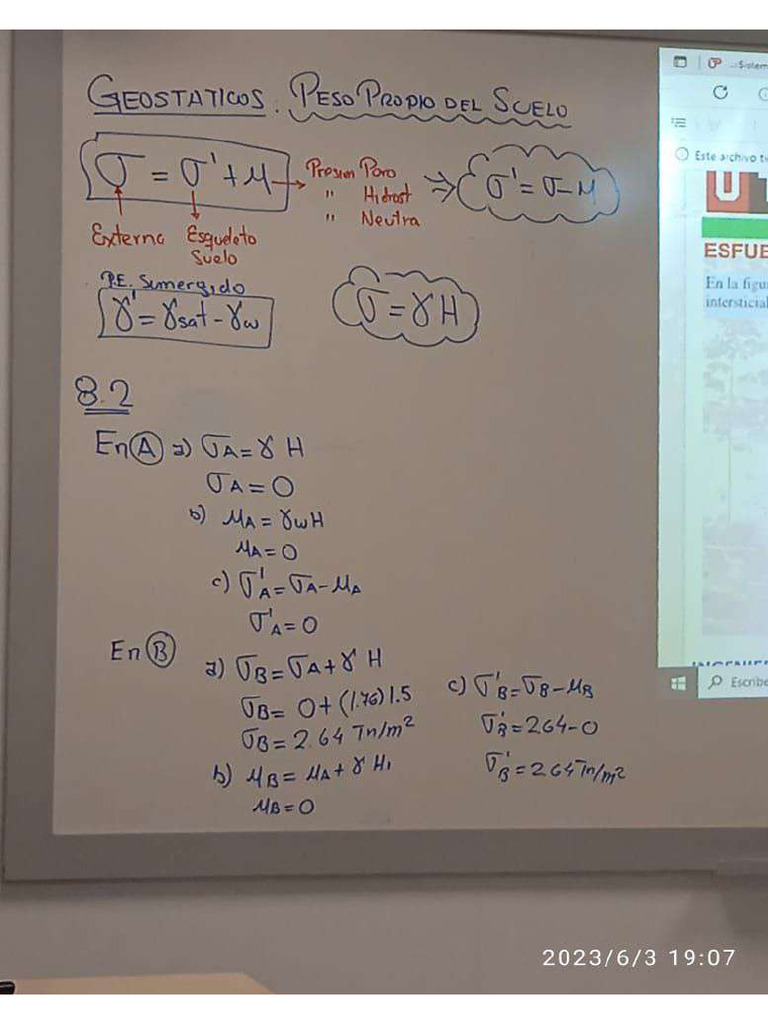 GEOSTATICOS: PESO PROPIO DEL SUELO
σ = σ' + μ → Presion Poro
" Hidrost
" Neutra
⇒ σ' = σ - μ
Externa Esqueleto
Suelo
P.E. Sumergido
γ' = γsat - γw
σ = γ H
8.2
En A a) σA = γ H
σA = 0
b) μA = γw H
μA = 0
c) σ'A = σA - μA
σ'A = 0
En B
a) σB = σA + γ H
σB = 0 + (1.76) 1.5
σB = 2.64 Tn/m²
b) μB = μA + γ H₁
μB = 0
c) σ'B = σB - μB
σ'B = 2.64 - 0
σ'B = 2.64 Tn/m²
Este archivo ti
U
ESFUE
En la figu
intersticial
Escribe
2023/6/3 19:07